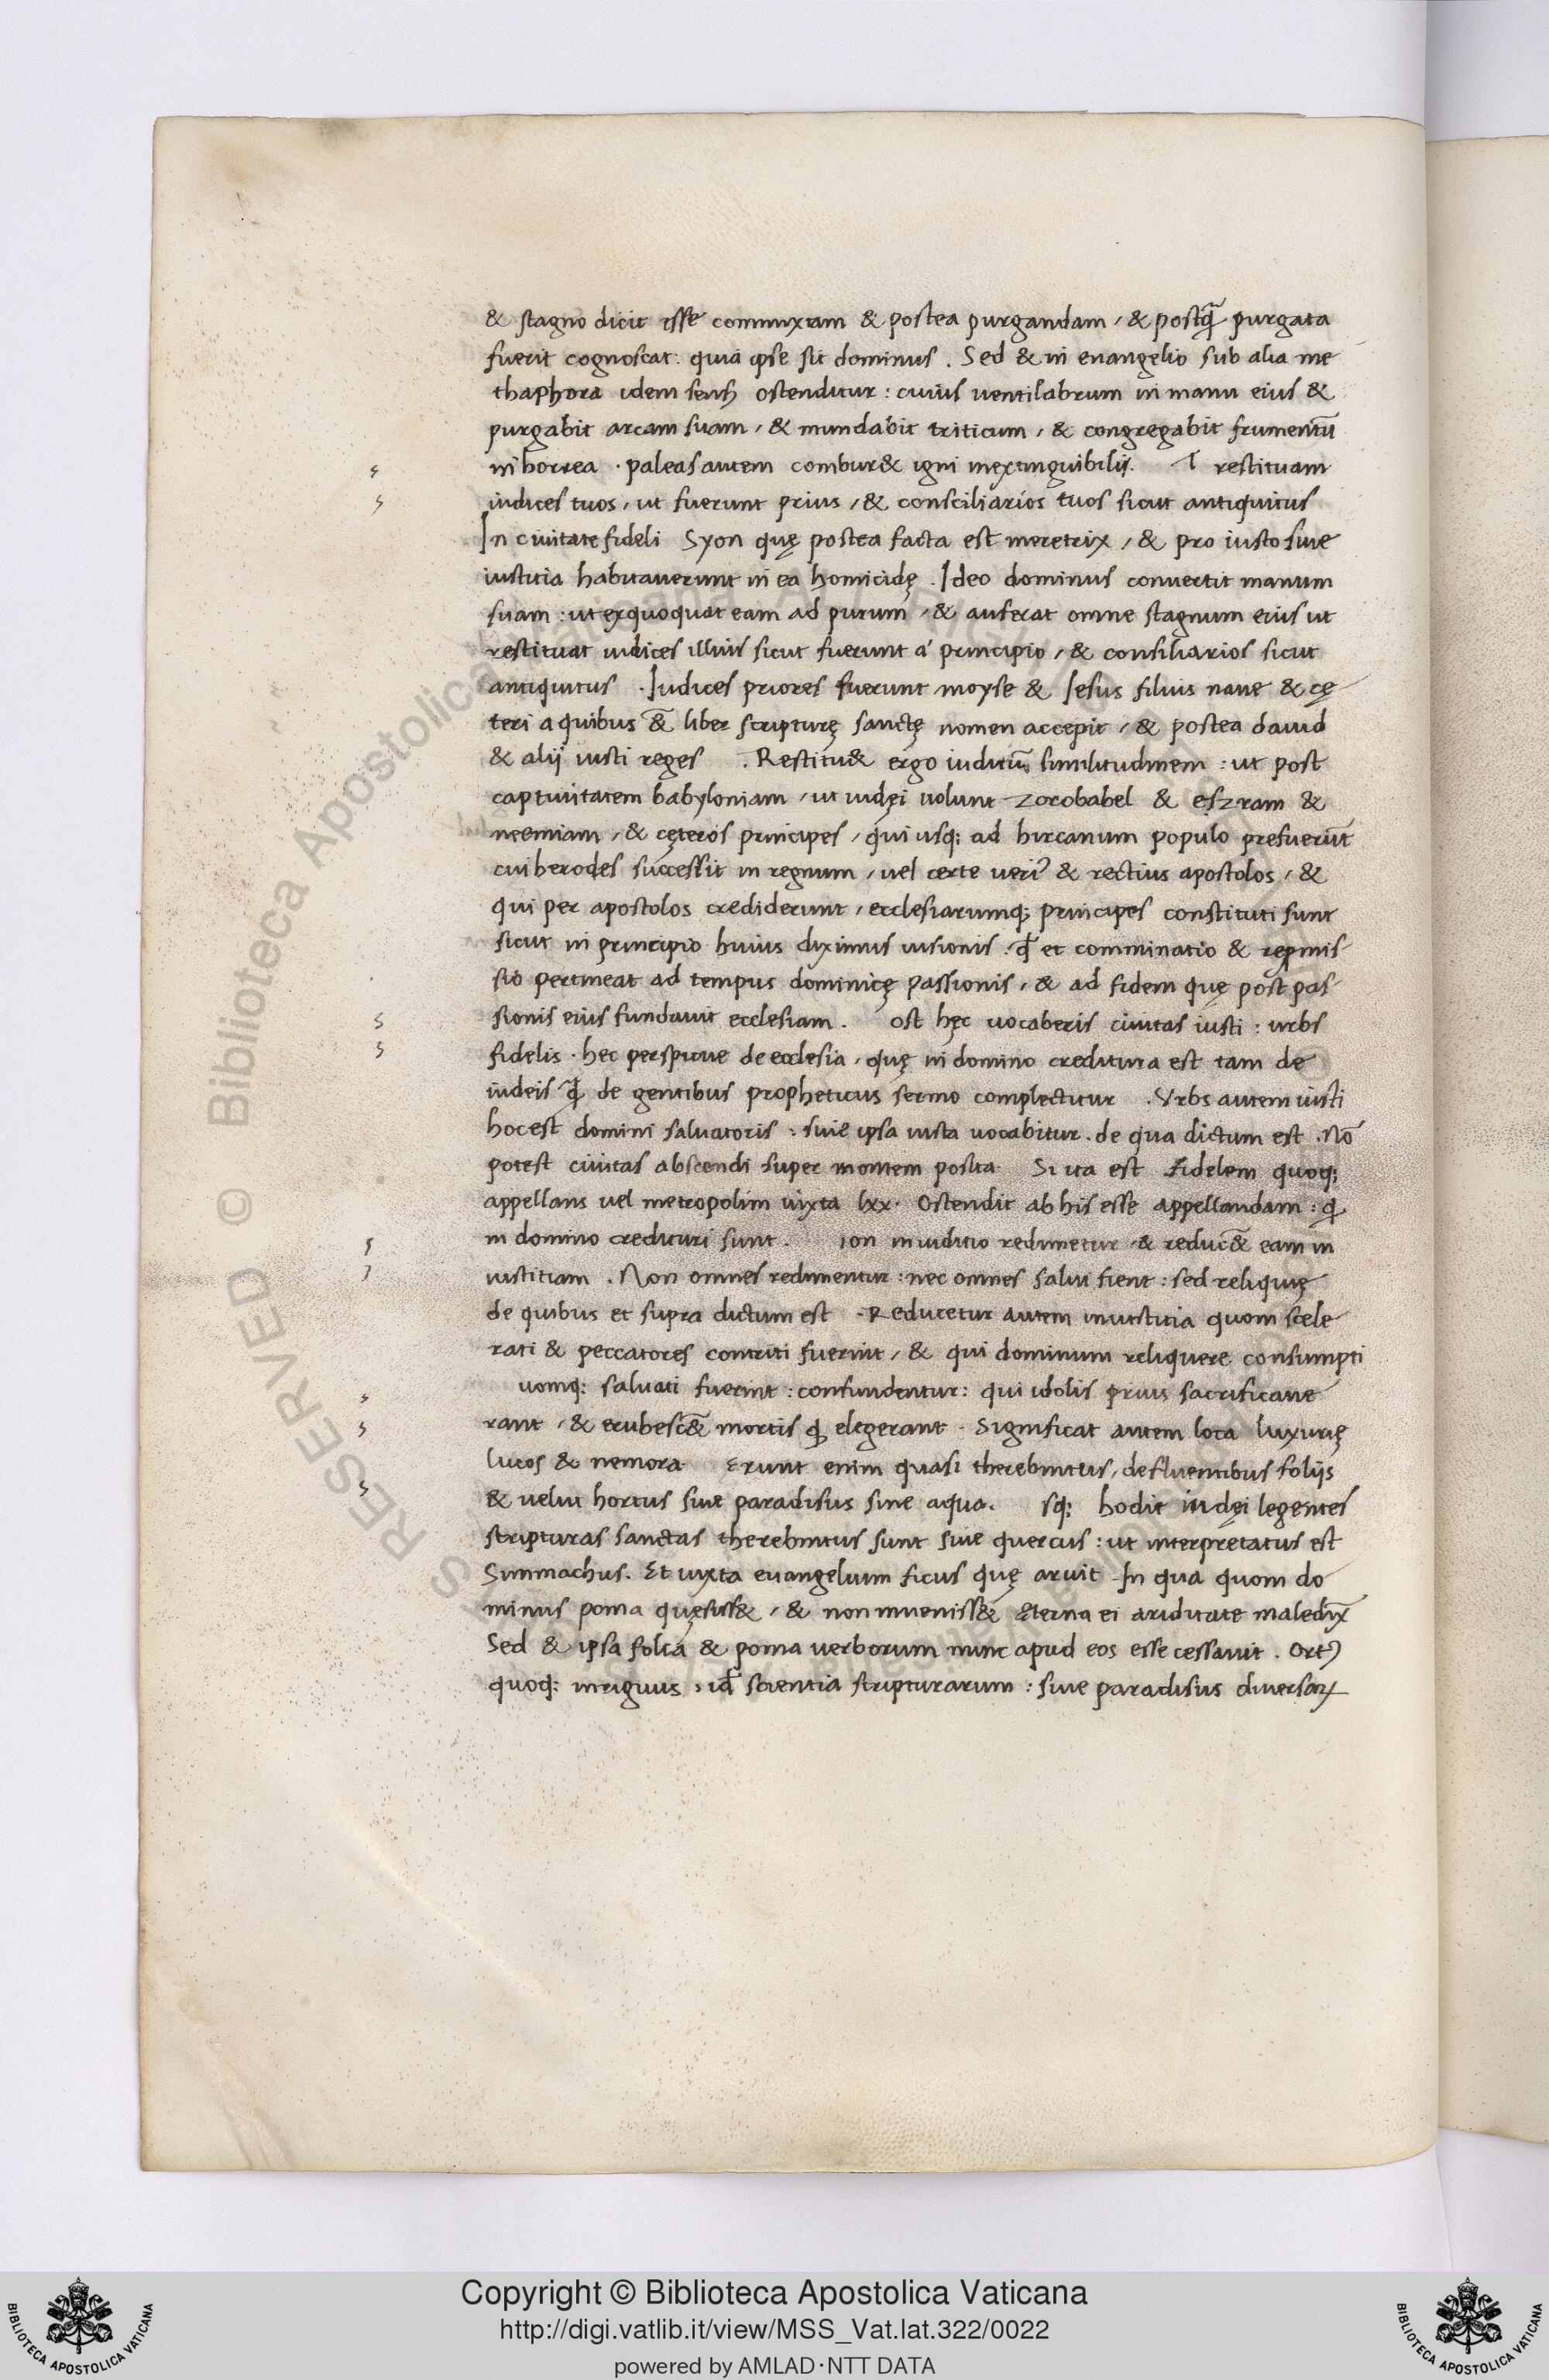 & stagno dicit esse commixtam & postea purgandam, & postq̃ purgata
fuerit cognoscat: quia ipse sit dominus. Sed & in euangelio sub alia me
thaphora idem sensꝰ ostenditur: cuius uentilabrum in manu eius &
purgabit arcam suam, & mundabit triticum, & congregabit frumentū
in horrea. paleas autem combur& igni inextinguibili. T restituam
iudices tuos, ut fuerunt prius, & consciliarios tuos sicut antiquitus
In ciuitate fideli Syon quę postea facta est meretrix, & pro iusto siue
iustitia habitauerunt in ea homicidę. Ideo dominus conuertit manum
suam: ut exquoquat eam ad purum, & auferat omne stagnum eius ut
restituat iudices illius sicut fuerunt á principio, & consiliarios sicut
antiquitus. Iudices priores fuerunt moyse & Iesus filius naue & cę
teri a quibus &̄ liber scripturę sanctę nomen accepit, & postea dauid
& alij iusti reges. Restitu& ergo iudicū similitudinem: ut post
captiuitatem babyloniam, ut iudęi uolunt zorobabel & eszram &
neemiam, & cęteros principes, qui usq; ad hircanum populo prefuerūt
cui herodes successit in regnum, uel certe ueriꝰ & rectius apostolos, &
qui per apostolos crediderunt, ecclesiarumq; principes constituti sunt
sicut in principio huius diximus uisionis. qđ et comminatio & repmis
sio pertineat ad tempus dominicę passionis, & ad fidem quę post pas
sionis eius fundauit ecclesiam. ost hęc uocaberis ciuitas iusti: urbs
fidelis. hec perspicue de ecclesia, quę in domino creditura est tam de
iudeis q̃ de gentibus propheticus sermo complectitur. Vrbs autem iusti
hoc est domini saluatoris: siue ipsa iusta uocabitur. de qua dictum est. Nō
potest ciuitas abscondi super montem posita. Si ita est fidelem quoq;
appellans uel metropolim iuxta lxx. Ostendit ab his esse appellandam: ꝗ
in domino credituri sunt. ion in iuditio redimetur & reduc̄& eam in
iustitiam. Non omnes redimentur: nec omnes salui fient: sed reliquię
de quibus et supra dictum est. Reducetur autem in iustitia quom scele
rati & peccatores contriti fuerint, & qui dominum reliquere consumpti
uomq; saluati fuerint: confundentur: qui idolis prius sacrificaue
rant, & erubesc̄& mortis ꝗ elegerant. Significat autem loca luxurię
lucos & nemora. Erunt enim quasi therebintus, defluentibus folijs
& uelut hortus siue paradisus sine aqua. sq; hodie iudęi legentes
scripturas sanctas therebintus sunt siue quercus: ut interpretatus est
Simmachus. Et iuxta euangelium ficus quę aruit. In qua quom do
minus poma quęsiss&, & non inueniss& ęterna ei ariditate maledix̄
Sed & ipsa folia & poma uerborum nunc apud eos esse cessauit. Ortꝰ
quoq; irriguus, iđ scientia scripturarum: siue paradisus diuersaꝝ
RESERVED © Biblioteca Apostolica Vaticana
Copyright © Biblioteca Apostolica Vaticana
http://digi.vatlib.it/view/MSS_Vat.lat.322/0022
powered by AMLAD·NTT DATA
BIBLIOTECA APOSTOLICA VATICANA
BIBLIOTECA APOSTOLICA VATICANA